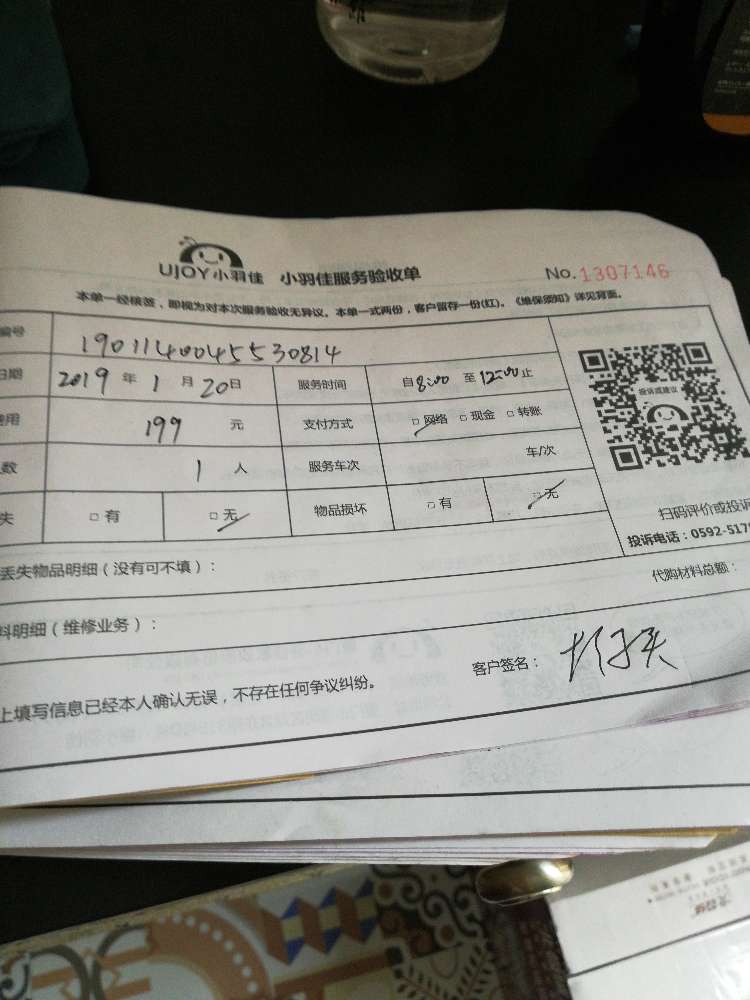 UJOY小羽佳 小羽佳服务验收单 No.1307146
本单一经核签，即视为对本次服务验收无异议。本单一式两份，客户留存一份(红)。《维保须知》详见背面。
编号 1901140045530814
日期 2019 年 1 月 20 日 服务时间 自 8:00 至 12:00 止
费用 199 元 支付方式 □ 网络 □ 现金 □ 转账
数 1 人 服务车次 车/次
失 □ 有 □ 无 物品损坏 □ 有 □ 无
投诉或建议
扫码评价或投诉
投诉电话：0592-517
丢失物品明细（没有可不填）：
代购材料总额：
料明细（维修业务）：
上填写信息已经本人确认无误，不存在任何争议纠纷。 客户签名：